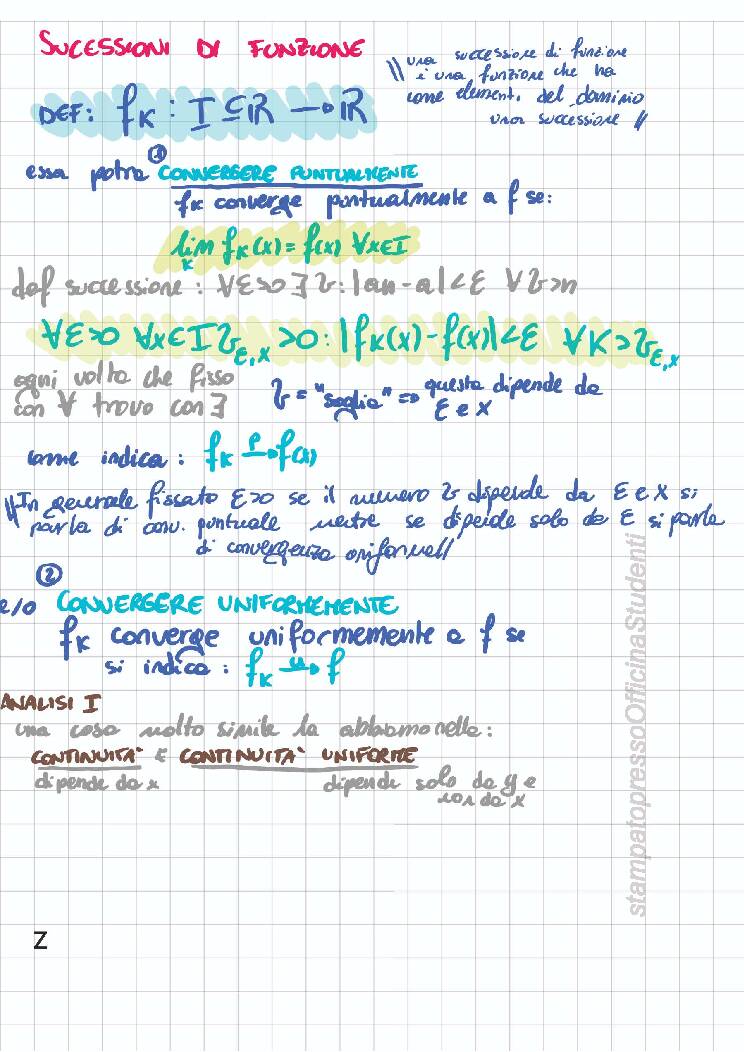 SUCESSIONI DI FUNZIONE
\\ una successione di funzione
è una funzione che ha
come elementi del dominio
una successione //
DEF: fK : I ⊆ R → R
essa potra ① CONVERGERE PUNTUALMENTE
fK converge puntualmente a f se:
lim fK(x) = f(x) ∀x∈I
K
def successione : ∀ε>0 ∃ v : |an-a|<ε ∀ v>n
∀ε>0 ∀x∈I vε,x >0 : |fK(x)-f(x)|<ε ∀K>vε,x
ogni volta che fisso
con ∀ trovo con ∃
v = "soglia" => questa dipende da
ε e x
come indica : fK P→ f(x)
\\ In generale fissato ε>0 se il numero v dipende da ε e x si
parla di conv. puntuale mentre se dipende solo da ε si parla
di convergenza uniforme //
②
e/o CONVERGERE UNIFORMEMENTE
fK converge uniformemente a f se
si indica : fK u→ f
ANALISI I
una cosa molto simile la abbiamo nelle:
CONTINUITA' E CONTINUITA' UNIFORME
dipende da x dipende solo da y e
non da x
Z
stampatopressoOfficinaStudenti